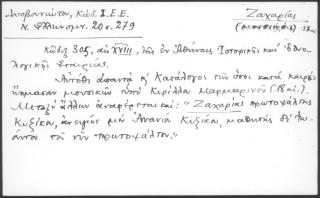 Λυσβανώτου, Κώδ. Ι.Ε.Ε. Ζαχαρίας
Ν. Ἑλληνομν. 20 σ. 279 (μουσικός) 18ος
Κῶδιξ 305, αἰ. XVIII, τῆς ἐν Ἀθήναις Ἱστορικῆς καὶ Ἐθνο-
λογικῆς Ἑταιρείας.
Αὐτόθι ἀπαντᾷ κ' Κατάλογος τῶν ὅσοι κατὰ καιροὺς
ἤκμασαν μουσικῶν ὑπὸ Κυρίλλου Μαρμαρινοῦ
Μεταξὺ ἄλλων ἀναφέρεται καὶ: "Ζαχαρίας πρωτοψάλτης
Κυζίκου, ἀνεψιὸς μὲν Ἀνανία Κυζίκου, μαθητὴς δὲ Ἰω-
άννου τοῦ νῦν πρωτοψάλτου."